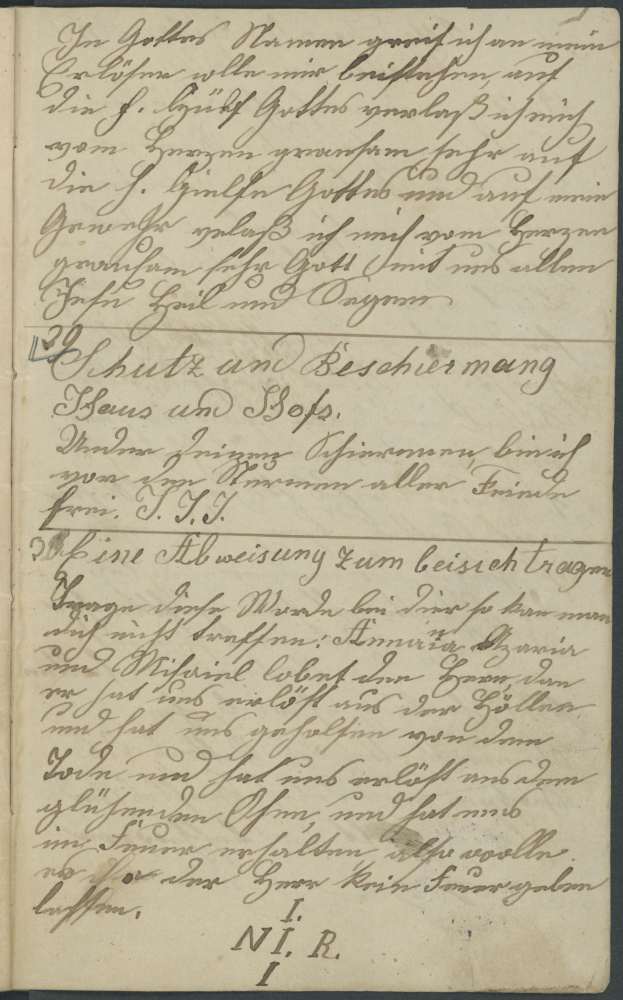 In Gottes Namen greif ich an mein
Erlöser wolle mir beistehen, auf
die h. Hülf Gottes verlaß ich mich
vom Herzen grausam sehr auf
die h. Hielfe Gottes und auf mein
Gewehr velaß ich mich vom Herzen
grausam sehr Gott mit uns allen
Jesu Heil und Segen
29
Schutz und Beschiermang
Haus und Hofs.
Under deinen Schiermen, bin ich
vor den Stürmen aller Feinde
frei. J. J. J.
30 Eine Abweisung zum beisich tragen
Trage diese Worde bei dier so kan man
dich nicht treffen: Annaia Azaria
und Misaiel lobet den Hern, dan
er hat uns erlöst aus der Höllen
und hat uns geholfen von dem
Tode und hat uns erlöst aus dem
glühenden Ofen, und hat uns
im Feuer erhalten, also wolle
es der Herr kein Feuer geben
lassen.
I.
N I. R.
I